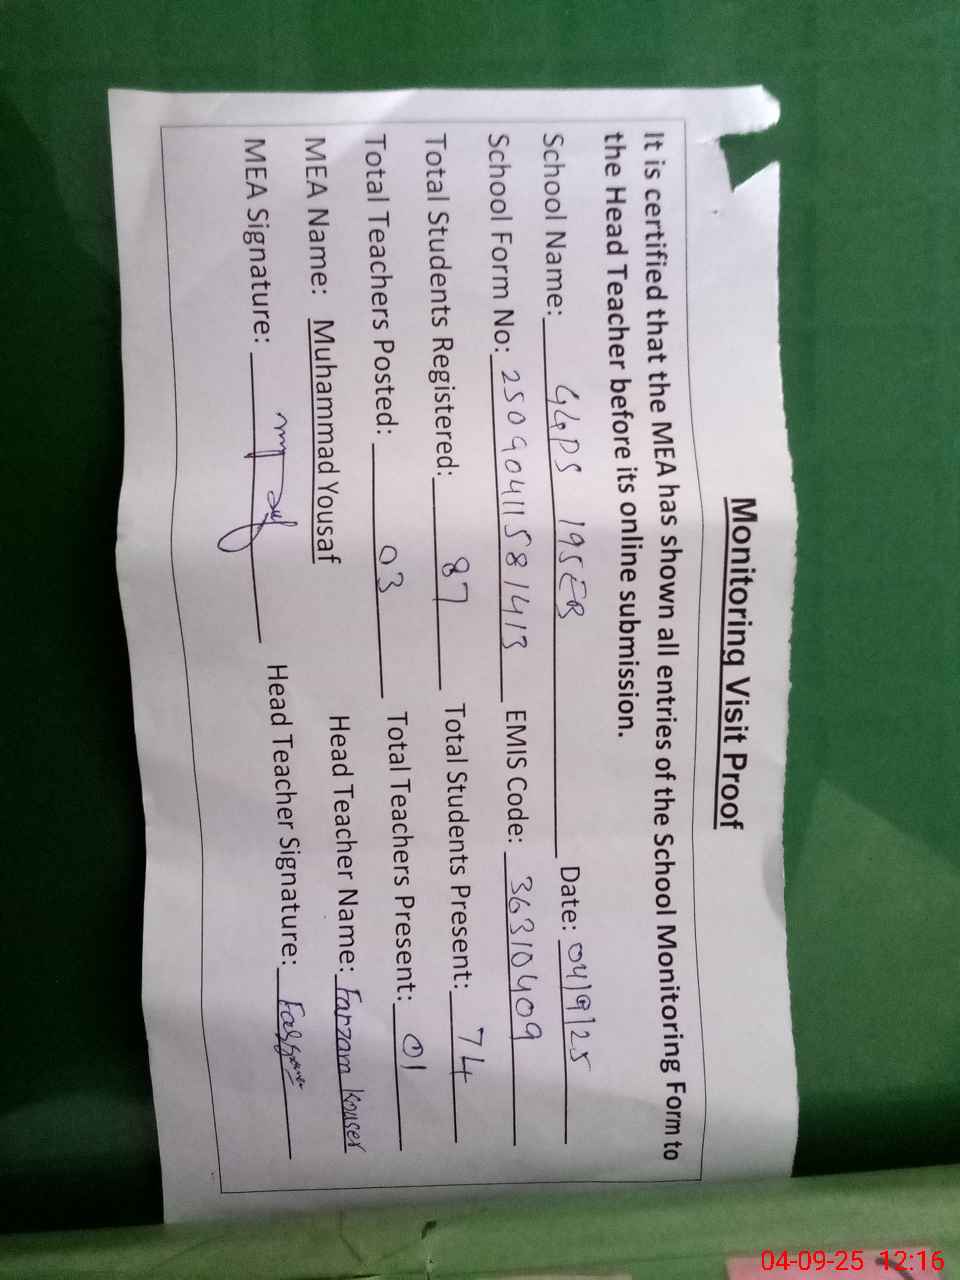 Monitoring Visit Proof
It is certified that the MEA has shown all entries of the School Monitoring Form to
the Head Teacher before its online submission.
School Name: GGPS 195EB Date: 04/9/25
School Form No: 25090411581413 EMIS Code: 36310409
Total Students Registered: 87 Total Students Present: 74
Total Teachers Posted: 03 Total Teachers Present: 01
MEA Name: Muhammad Yousaf Head Teacher Name: Farzam Kouser
MEA Signature: Head Teacher Signature:
04-09-25 12:16